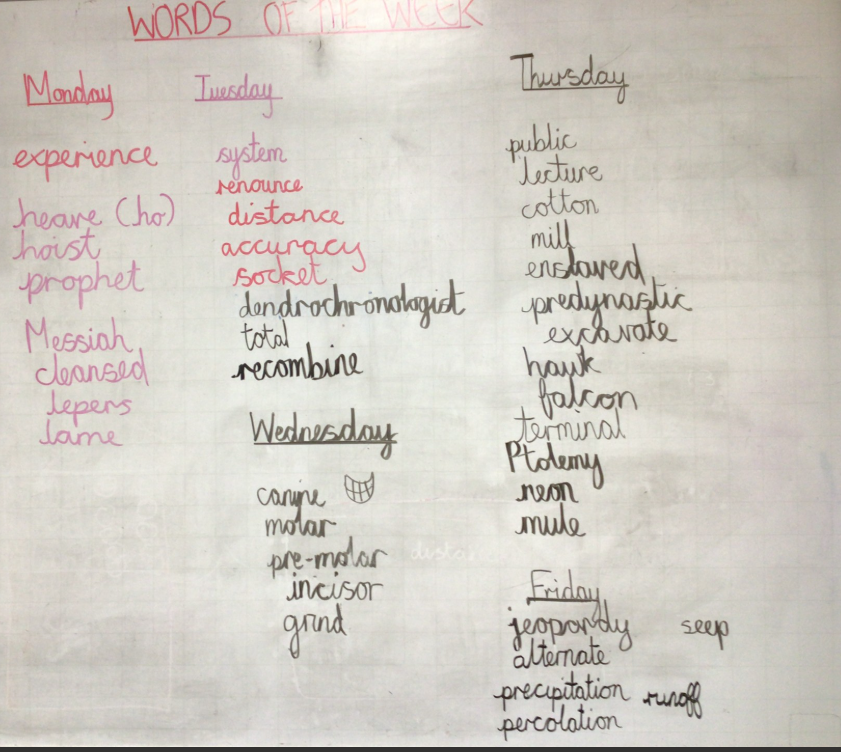 WORDS OF THE WEEK
Monday
experience
heave (ho)
hoist
prophet
Messiah
cleansed
lepers
lame
Tuesday
system
renounce
distance
accuracy
socket
dendrochronologist
total
recombine
Wednesday
canine
molar
pre-molar
incisor
grind
Thursday
public
lecture
cotton
mill
enslaved
predynastic
excavate
hawk
falcon
terminal
Ptolemy
neon
mule
Friday
jeopardy seep
alternate
precipitation runoff
percolation